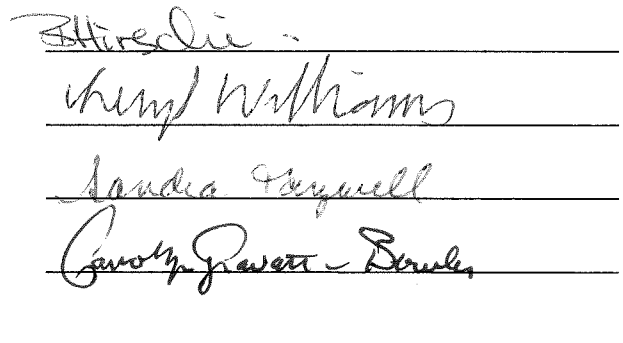 Cheryl Williams
Sandra Tazwell
Carolyn Gravatt - Bowles